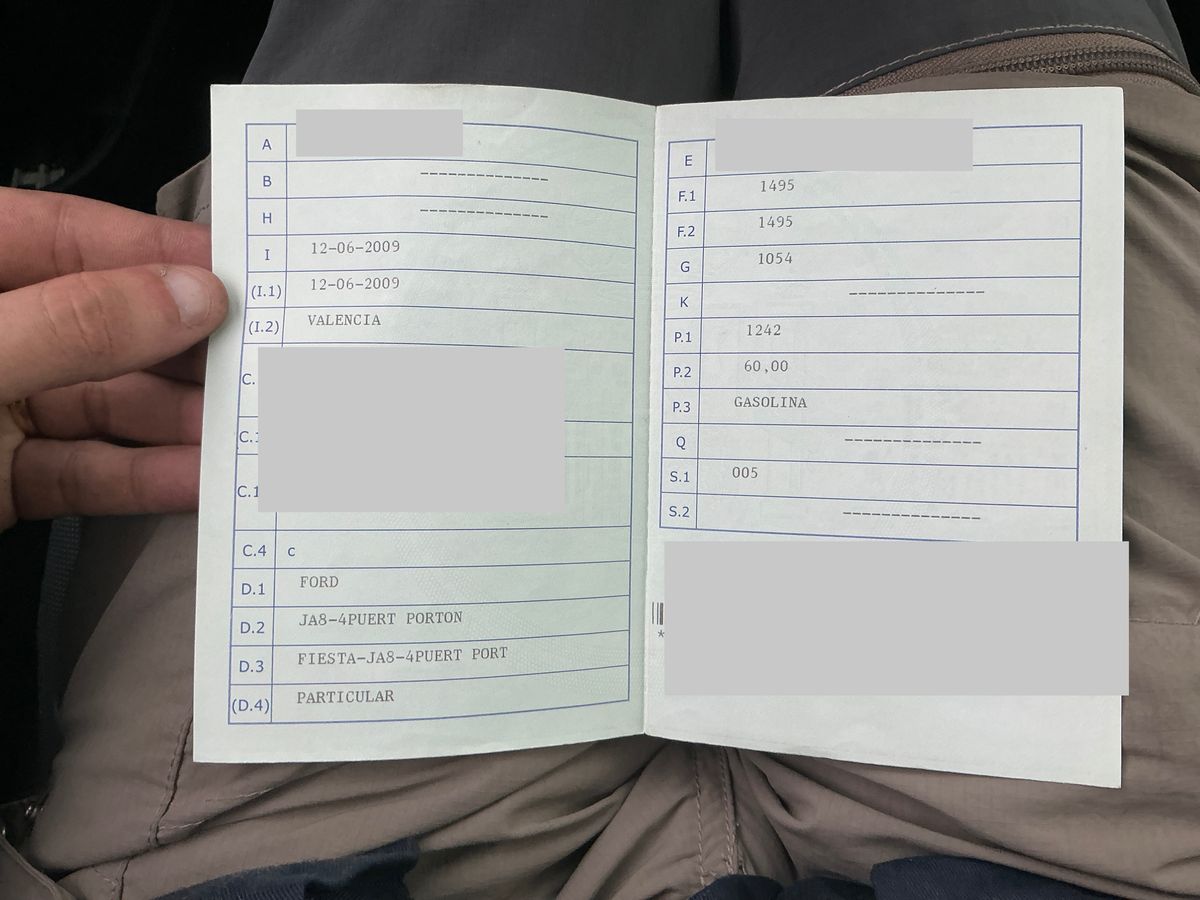 A
B --------------
H --------------
I 12-06-2009
(I.1) 12-06-2009
(I.2) VALENCIA
C.
C.1
C.1
C.4 c
D.1 FORD
D.2 JA8-4PUERT PORTON
D.3 FIESTA-JA8-4PUERT PORT
(D.4) PARTICULAR
E
F.1 1495
F.2 1495
G 1054
K --------------
P.1 1242
P.2 60,00
P.3 GASOLINA
Q --------------
S.1 005
S.2 --------------
*